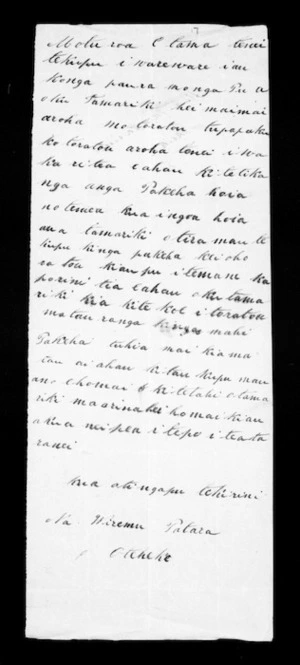 Motu roa E tama tenei
te kupu i wareware i au
konga paura monga Pu a
oku Tamariki hei maimai
aroha mo toratou tupapaku
ko toratou aroha tenei i wa
ka ri tea e ahau ki te tika
nga anga Pakeha hoia
no temea kua ingoa hoia
ana tamariki otira mau te
kupu kinga pakeha
ra tou kia upu i temea ka
e ahau oku tama
riki kia kite koe i toratou
matau ranga kinga mahi
Pakeha tuhia mai kia ma
tau ai ahau ki tau kupu mau
ano e homai ki tetahi o tama
riki ma e homai ki au
akua nei pea i te po i te ata
ranei
kua oti ngapu
Na Wiremu Patara
Oteneke